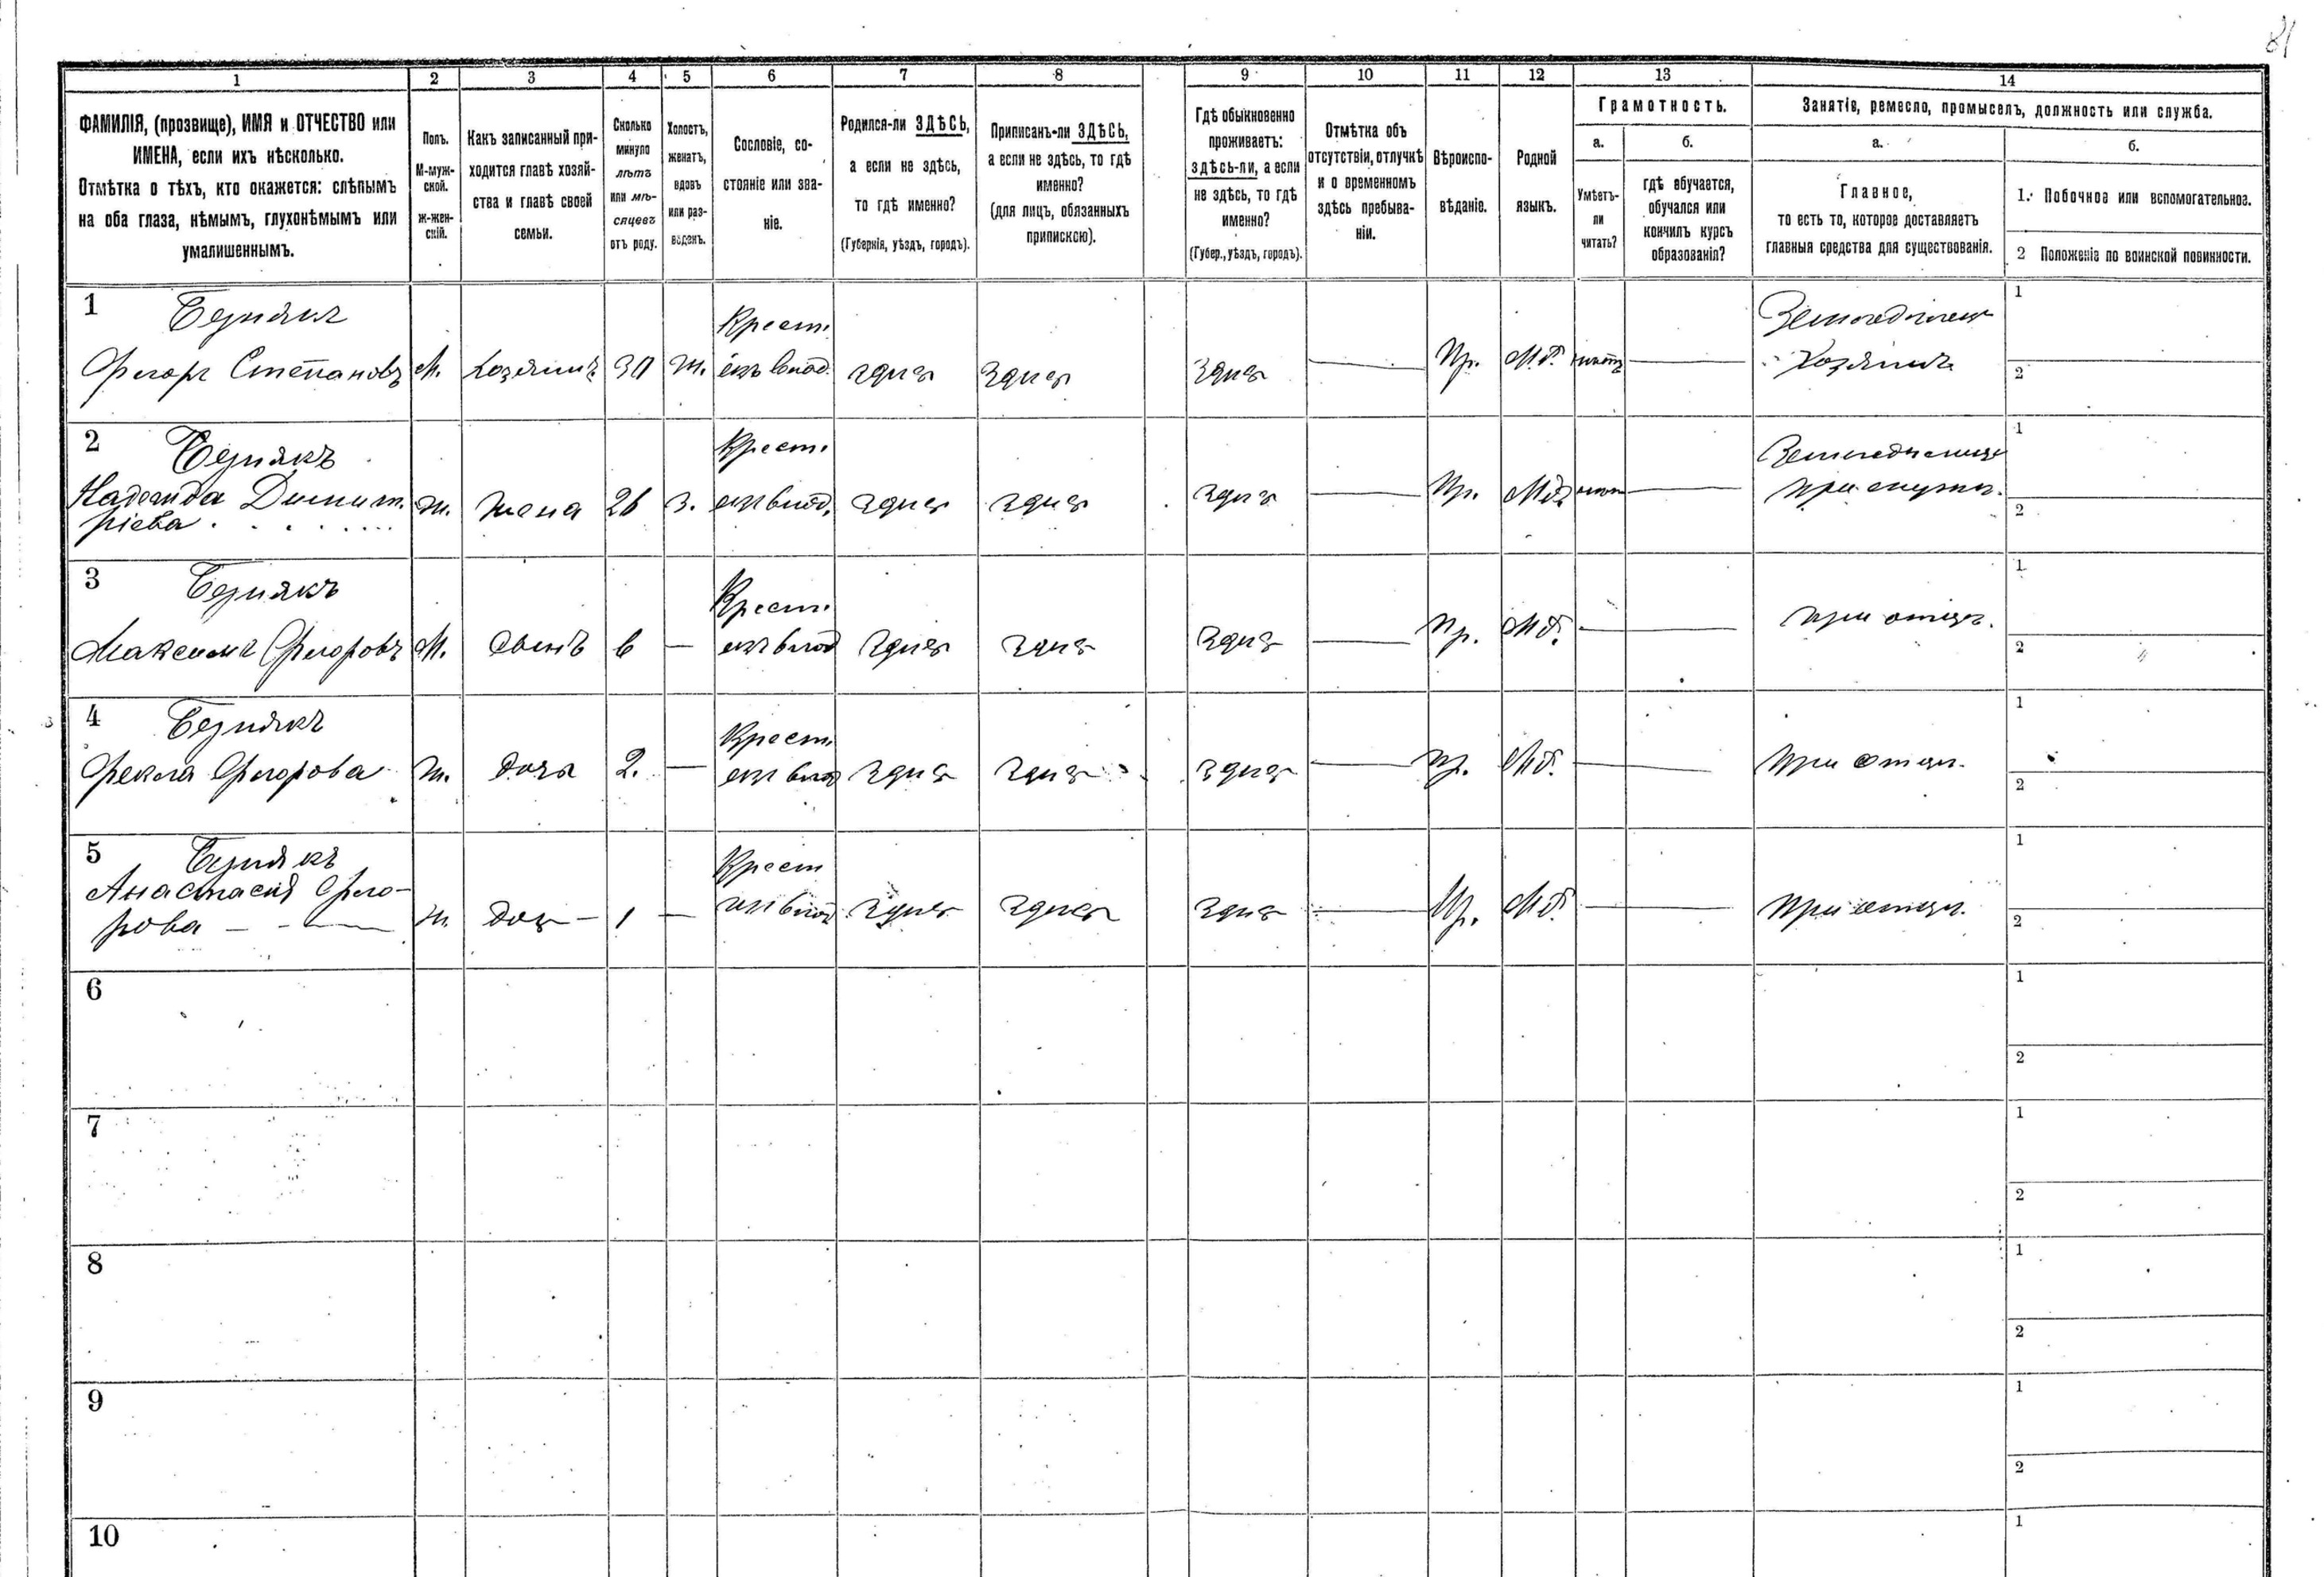 81
1 2 3 4 5 6 7 8 9 10 11 12 13 14
ФАМИЛІЯ, (прозвище), ИМЯ и ОТЧЕСТВО или
ИМЕНА, если ихъ нѣсколько.
Отмѣтка о тѣхъ, кто окажется: слѣпымъ
на оба глаза, нѣмымъ, глухонѣмымъ или
умалишеннымъ.
Полъ.
М-муж-
ской.
ж-жен-
скій.
Какъ записанный при-
ходится главѣ хозяй-
ства и главѣ своей
семьи.
Сколько
минуло
лѣтъ
или мѣ-
сяцевъ
отъ роду.
Холостъ,
женатъ,
вдовъ
или раз-
веденъ.
Сословіе, со-
стояніе или зва-
ніе.
Родился-ли ЗДѢСЬ,
а если не здѣсь,
то гдѣ именно?
(Губернія, уѣздъ, городъ).
Приписанъ-ли ЗДѢСЬ,
а если не здѣсь, то гдѣ
именно?
(для лицъ, обязанныхъ
припискою).
Гдѣ обыкновенно
проживаетъ:
здѣсь-ли, а если
не здѣсь, то гдѣ
именно?
(Губер., уѣздъ, городъ).
Отмѣтка объ
отсутствіи, отлучкѣ
и о временномъ
здѣсь пребыва-
ніи.
Вѣроиспо-
вѣданіе.
Родной
языкъ.
Грамотность.
а.
Умѣетъ-
ли
читать?
б.
гдѣ обучается,
обучался или
кончилъ курсъ
образованія?
Занятіе, ремесло, промыселъ, должность или служба.
а.
Главное,
то есть то, которое доставляетъ
главныя средства для существованія.
б.
1. Побочное или вспомогательное.
2 Положеніе по воинской повинности.
1
Степановъ М. хозяинъ 30 ж. Крест. здѣсь здѣсь здѣсь Пр. Мд. Хозяинъ
1
2
2
Надежда Димит.
ріева ж. жена 26 з. Крест. здѣсь здѣсь здѣсь Пр. Мд.
1
2
3
Максимъ Ѳеодоровъ М. сынъ 6 — Крест. здѣсь здѣсь здѣсь Пр. Мд. при отцѣ.
1
2
4
Ѳекла Ѳеодорова ж. дочь 2. — Крест. здѣсь здѣсь здѣсь Пр. Мд. при отцѣ.
1
2
5
Анастасія Ѳеодо-
рова ж. дочь 1 — Крест здѣсь здѣсь здѣсь Пр. Мд. при отцѣ.
1
2
6
1
2
7
1
2
8
1
2
9
1
2
10
1